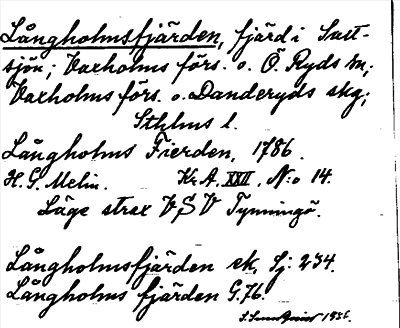 Långholmsfjärden, fjärd i Salt-
sjön; Vaxholms förs. o. Ö. Ryds sn;
Vaxholms förs. o. Danderyds skg;
Sthlms l.
Långholms Fierden, 1786.
H. G. Melin. Kr.A. XXII, N:o 14.
Läge strax VSV Tynningö.
Långholmsfjärden ek, Sj: 234.
Långholms fjärden G.76.
1936.